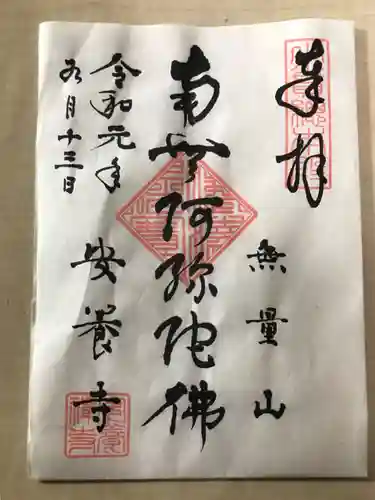 奉拝
無量山
南無阿弥陀佛
令和元年
九月十三日
安養寺